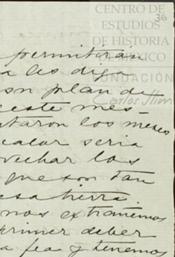 CENTRO DE
ESTUDIOS
DE HISTORIA
DE MÉXICO
36
FUNDACIÓN
Carlos Slim
permitirán
a les digo
son plan de
este mes
taron los meses
calor seria
vechar los
que son tan
esa tierra
nos extrañemos
primer deber
a fea y tenemos